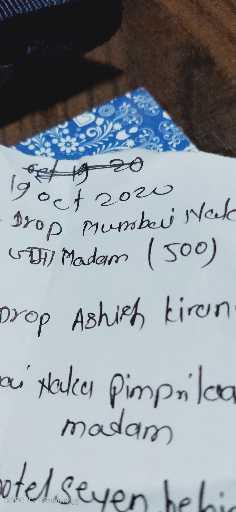 19 oct 2020
Drop Mumbai Nak
Madam (500)
Drop Ashish kiran
ai Naka
madam
otel seven behi